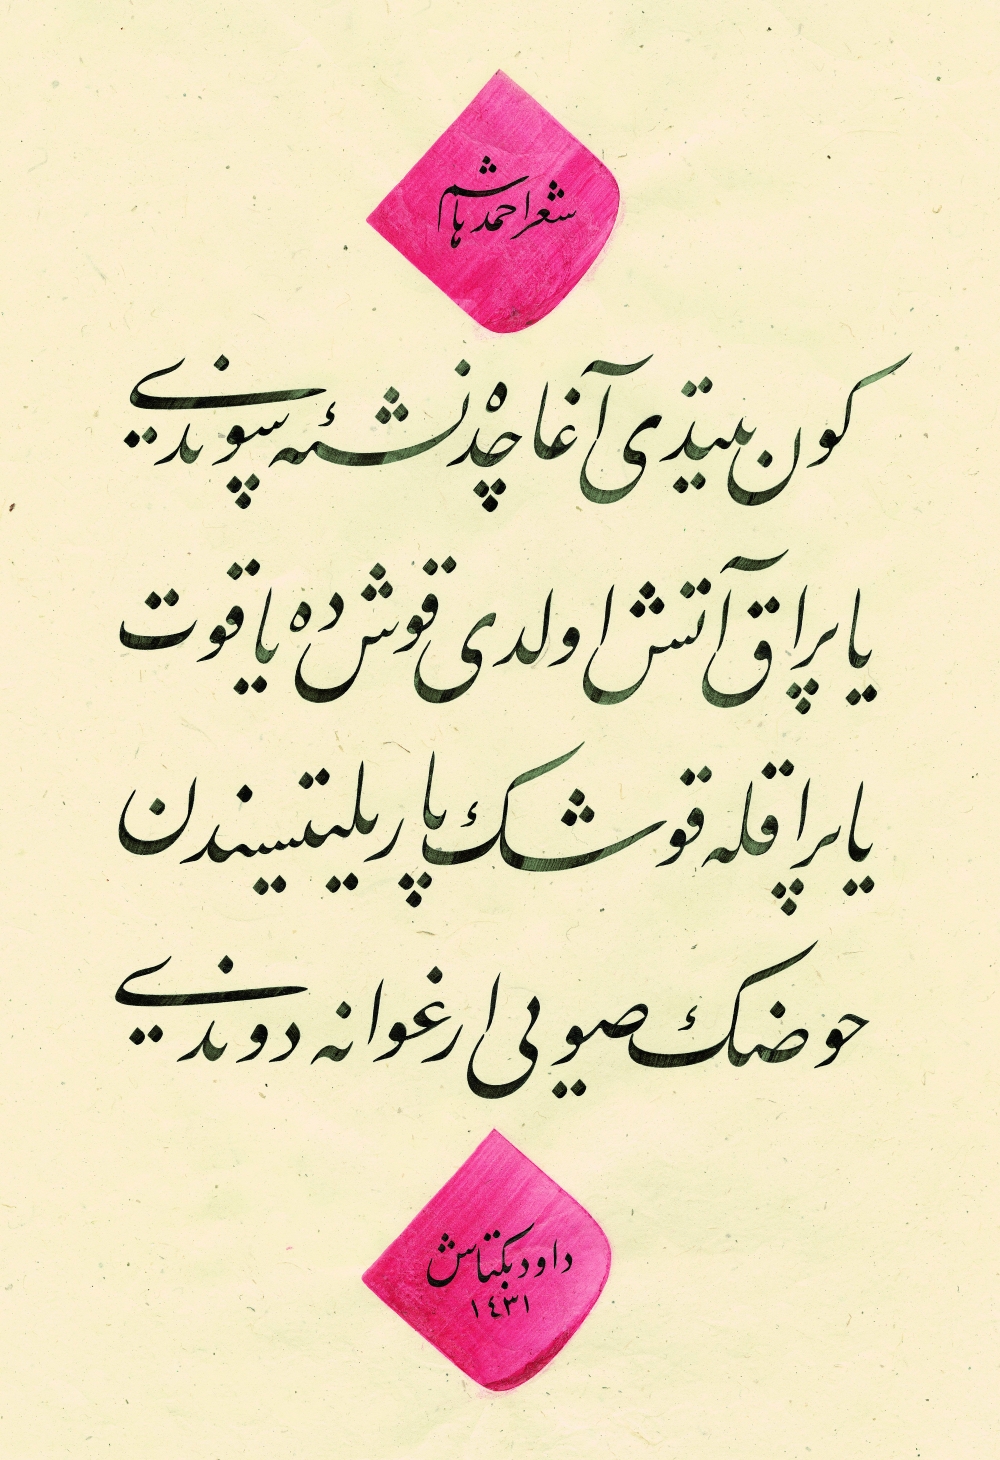 شعر احمد هاشم
كون بیتدی آغاچده نشئه سوندی
یاپراق آتش اولدی قوش ده یاقوت
یاپراقله قوشڭ پاریلتیسندن
حوضڭ صویی ارغوانه دوندی
داود بكتاش
١٤٣١